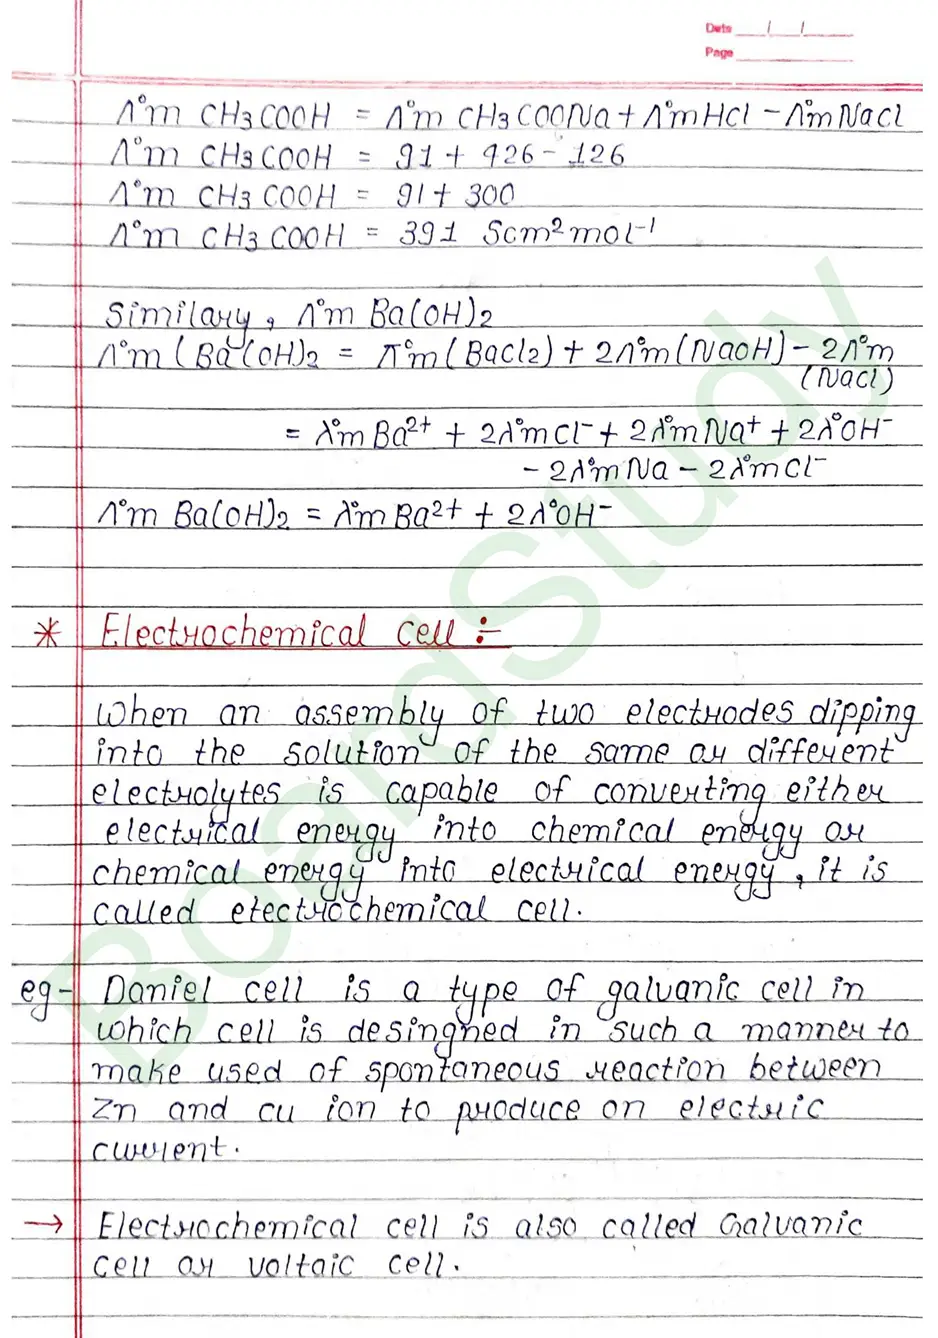 Date / /
Page
Λ°m CH3COOH = Λ°m CH3COONa + Λ°mHCl - Λ°mNaCl
Λ°m CH3COOH = 91 + 426 - 126
Λ°m CH3COOH = 91 + 300
Λ°m CH3COOH = 391 Scm²mol⁻¹
Similary, Λ°m Ba(OH)2
Λ°m (Ba(OH)2 = Λ°m(BaCl2) + 2Λ°m(NaOH) - 2Λ°m
(NaCl)
= λ°mBa²⁺ + 2λ°mCl⁻ + 2λ°mNa⁺ + 2λ°OH⁻
- 2λ°mNa - 2λ°mCl⁻
Λ°m Ba(OH)2 = λ°mBa²⁺ + 2λ°OH⁻
* Electrochemical cell :-
When an assembly of two electrodes dipping
into the solution of the same or different
electrolytes is capable of converting either
electrical energy into chemical energy or
chemical energy into electrical energy, it is
called electrochemical cell.
eg- Daniel cell is a type of galvanic cell in
which cell is desingned in such a manner to
make used of spontaneous reaction between
Zn and cu ion to produce on electric
current.
→ Electrochemical cell is also called Galvanic
cell or voltaic cell.
BoardStudy